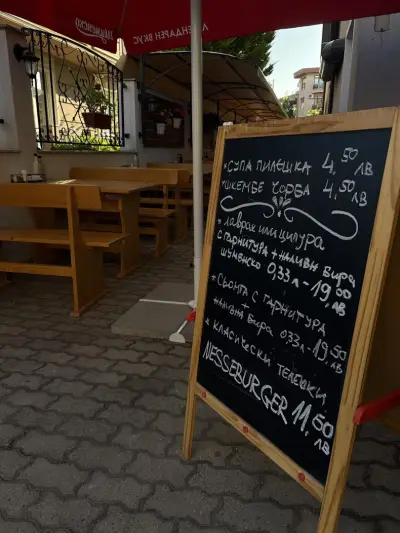 шуменско
ЛЕГЕНДАРЕН ВКУС
* СУПА ПИЛЕШКА 4,50 ЛВ
* ШКЕМБЕ ЧОРБА 4,50 ЛВ
* ЛАВРАК ИЛИ ЦИПУРА
С ГАРНИТУРА + НАЛИВНА БИРА
ШУМЕНСКО 0,33 Л - 19,00 ЛВ
* СЬОМГА С ГАРНИТУРА
+
НАЛИВНА БИРА 0,33 Л - 19,50 ЛВ
* КЛАСИЧЕСКИ, ТЕЛЕШКИ,
NESSEBURGER 11,50 ЛВ